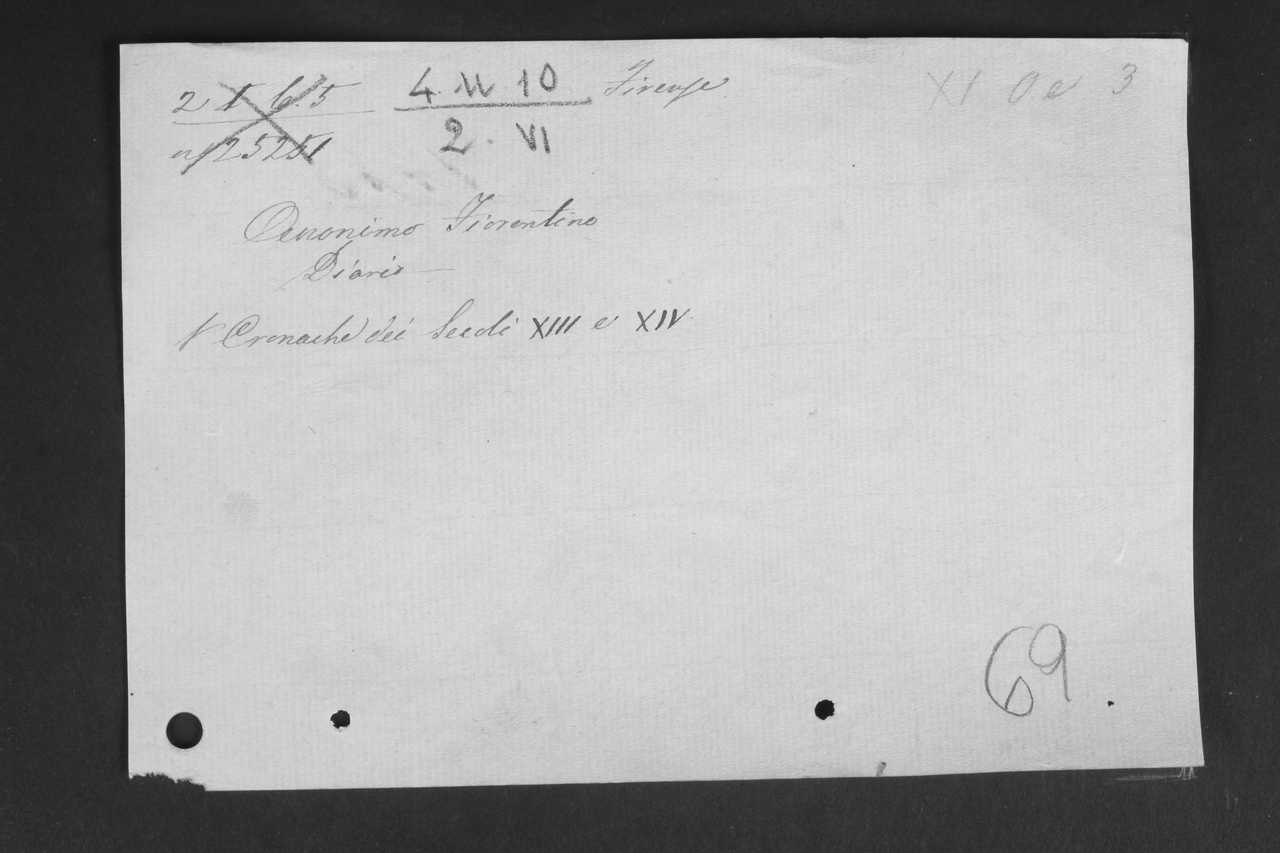 2 I 6. 5 4. 11 10 Firenze XI O e 3
n/25251 2. VI
Anonimo Fiorentino
Diario
V Cronache dei Secoli XIII e XIV
69